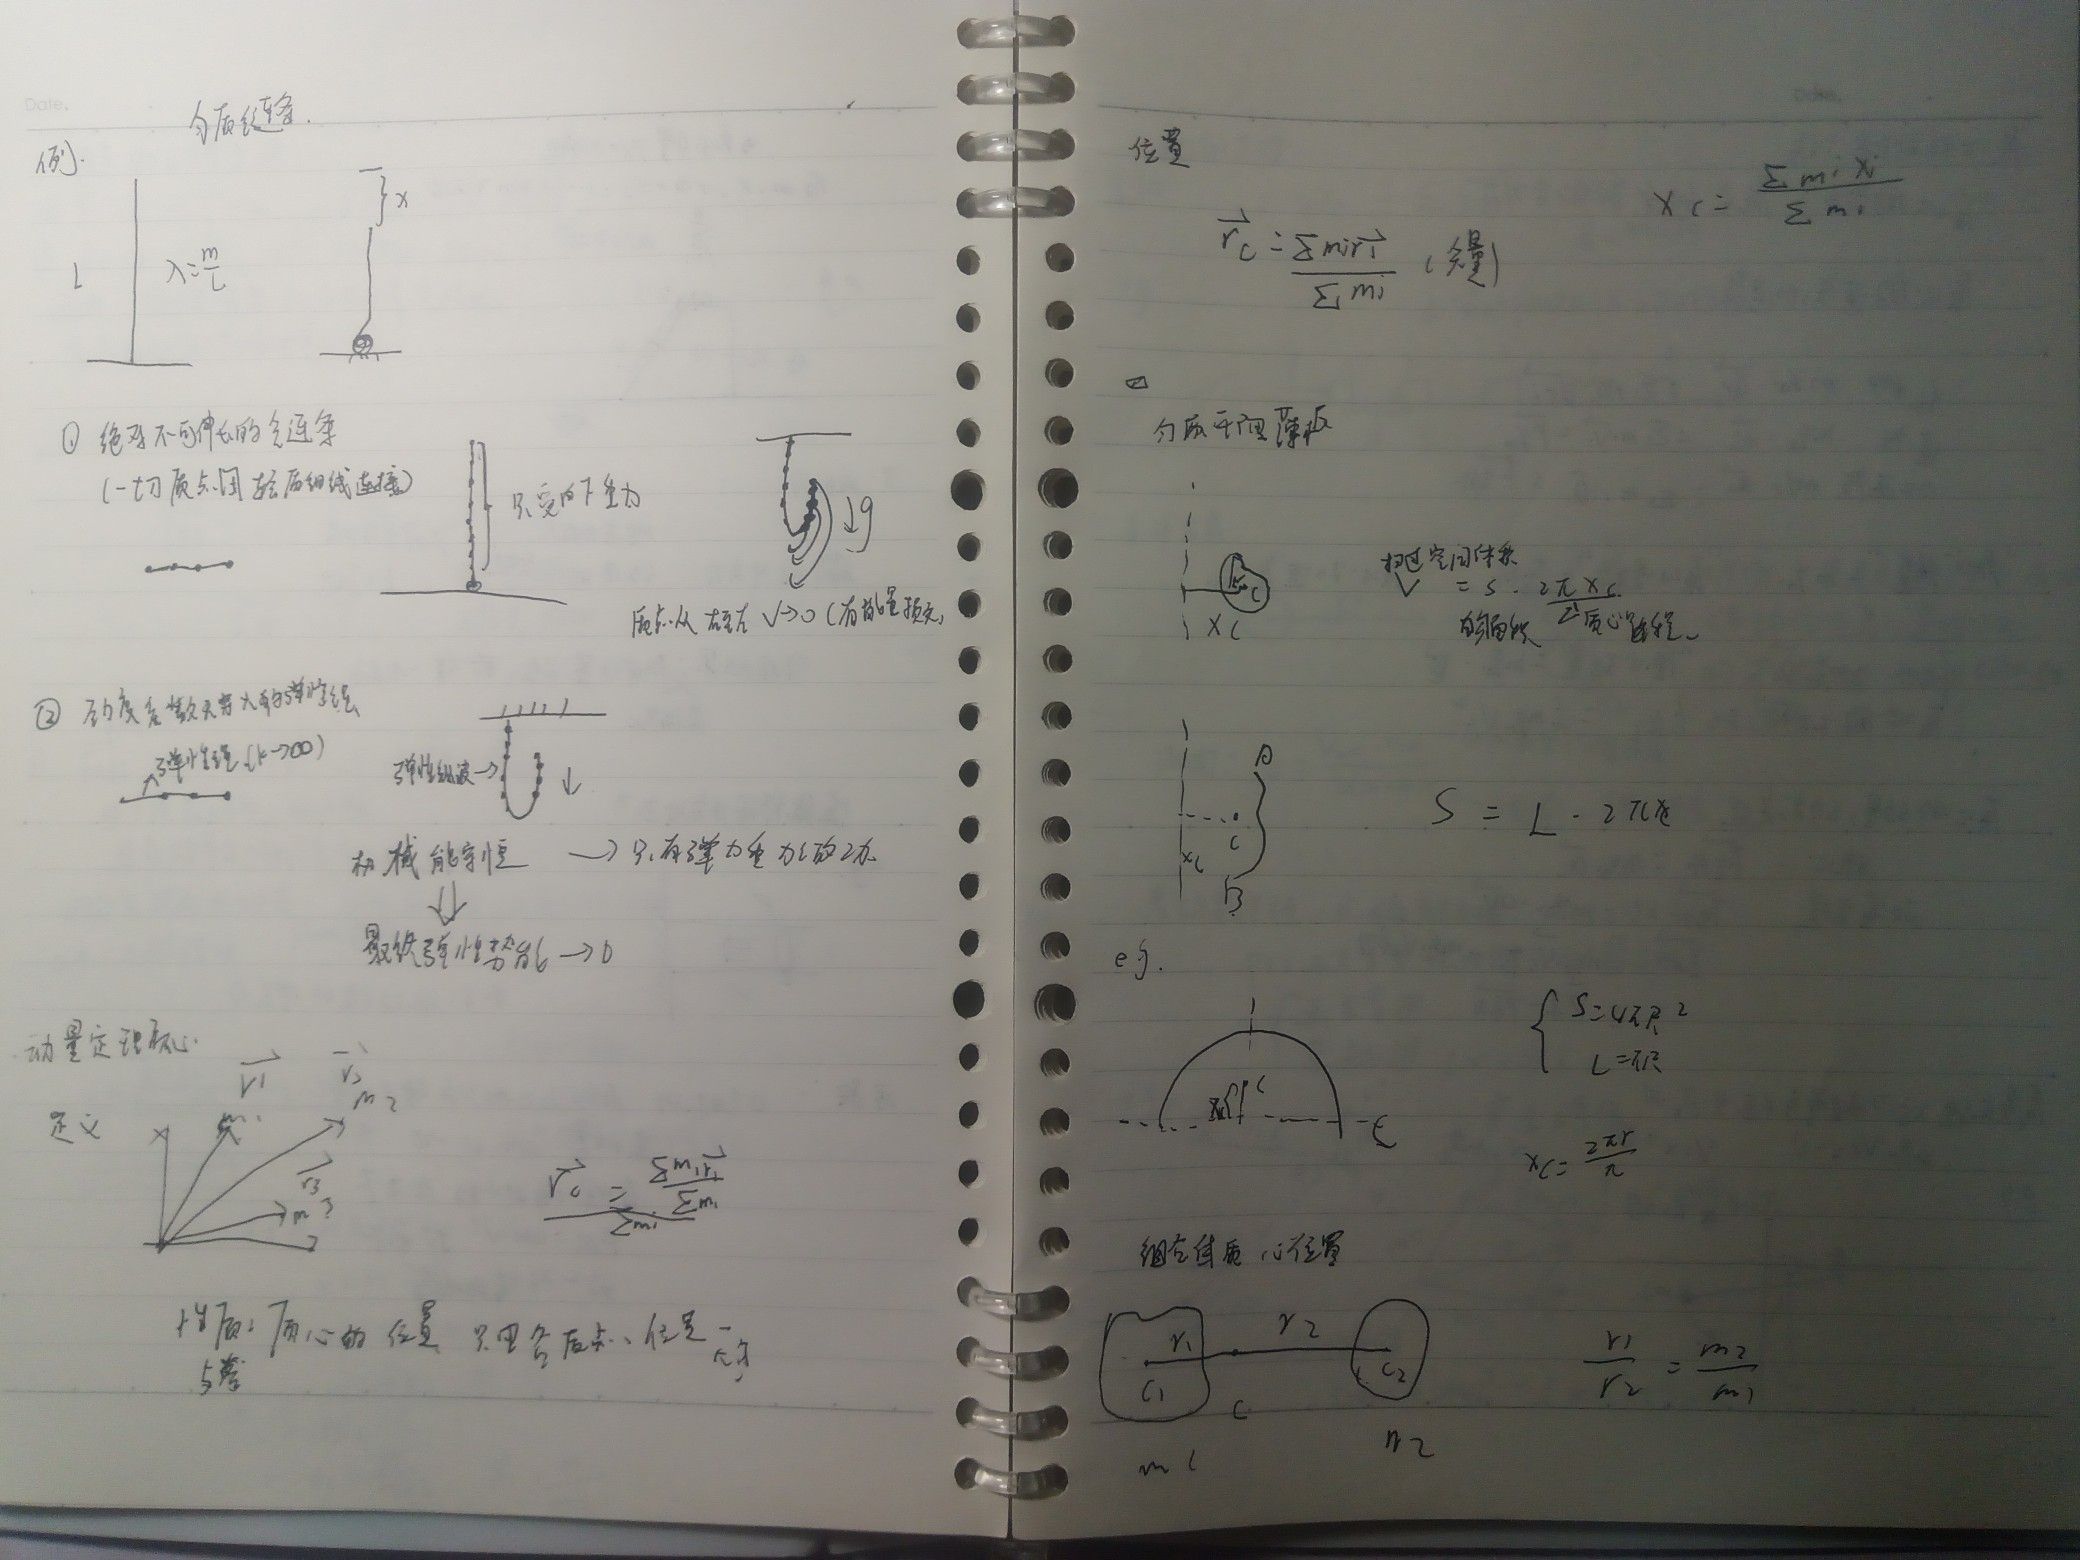 Date.
匀质链条.
例.
x
L
λ=m/L
① 绝对不可伸长的链条
(一切质点用轻质细线连接)
只受向下重力
↓g
质点从右至左 V→0 (有能量损失)
② 劲度系数无穷大的弹性绳
弹性绳 (k→∞)
弹性绳
机械能守恒 → 只有弹力重力做功
⇓
最终弹性势能→0
动量定理 质心
r1 r2
m2
定义
r3
m3
r⃗c = Σmir⃗i / Σmi
Σmi
性质: 质心的位置 只由各质点位置
位置
xc = Σ mi xi / Σ mi
r⃗c = Σ mi r⃗i / Σ mi (矢量)
匀质平面薄板
C
xc
扫过空间体积
V = S · 2π xc
的面积 质心路程
A
C
xc
B
S = L · 2πx
eg.
C
{ S=4πR²
L=πR
xc = 2πr/π
组合体质心位置
r1 r2
C1 C C2
m1
m2
r1/r2 = m2/m1